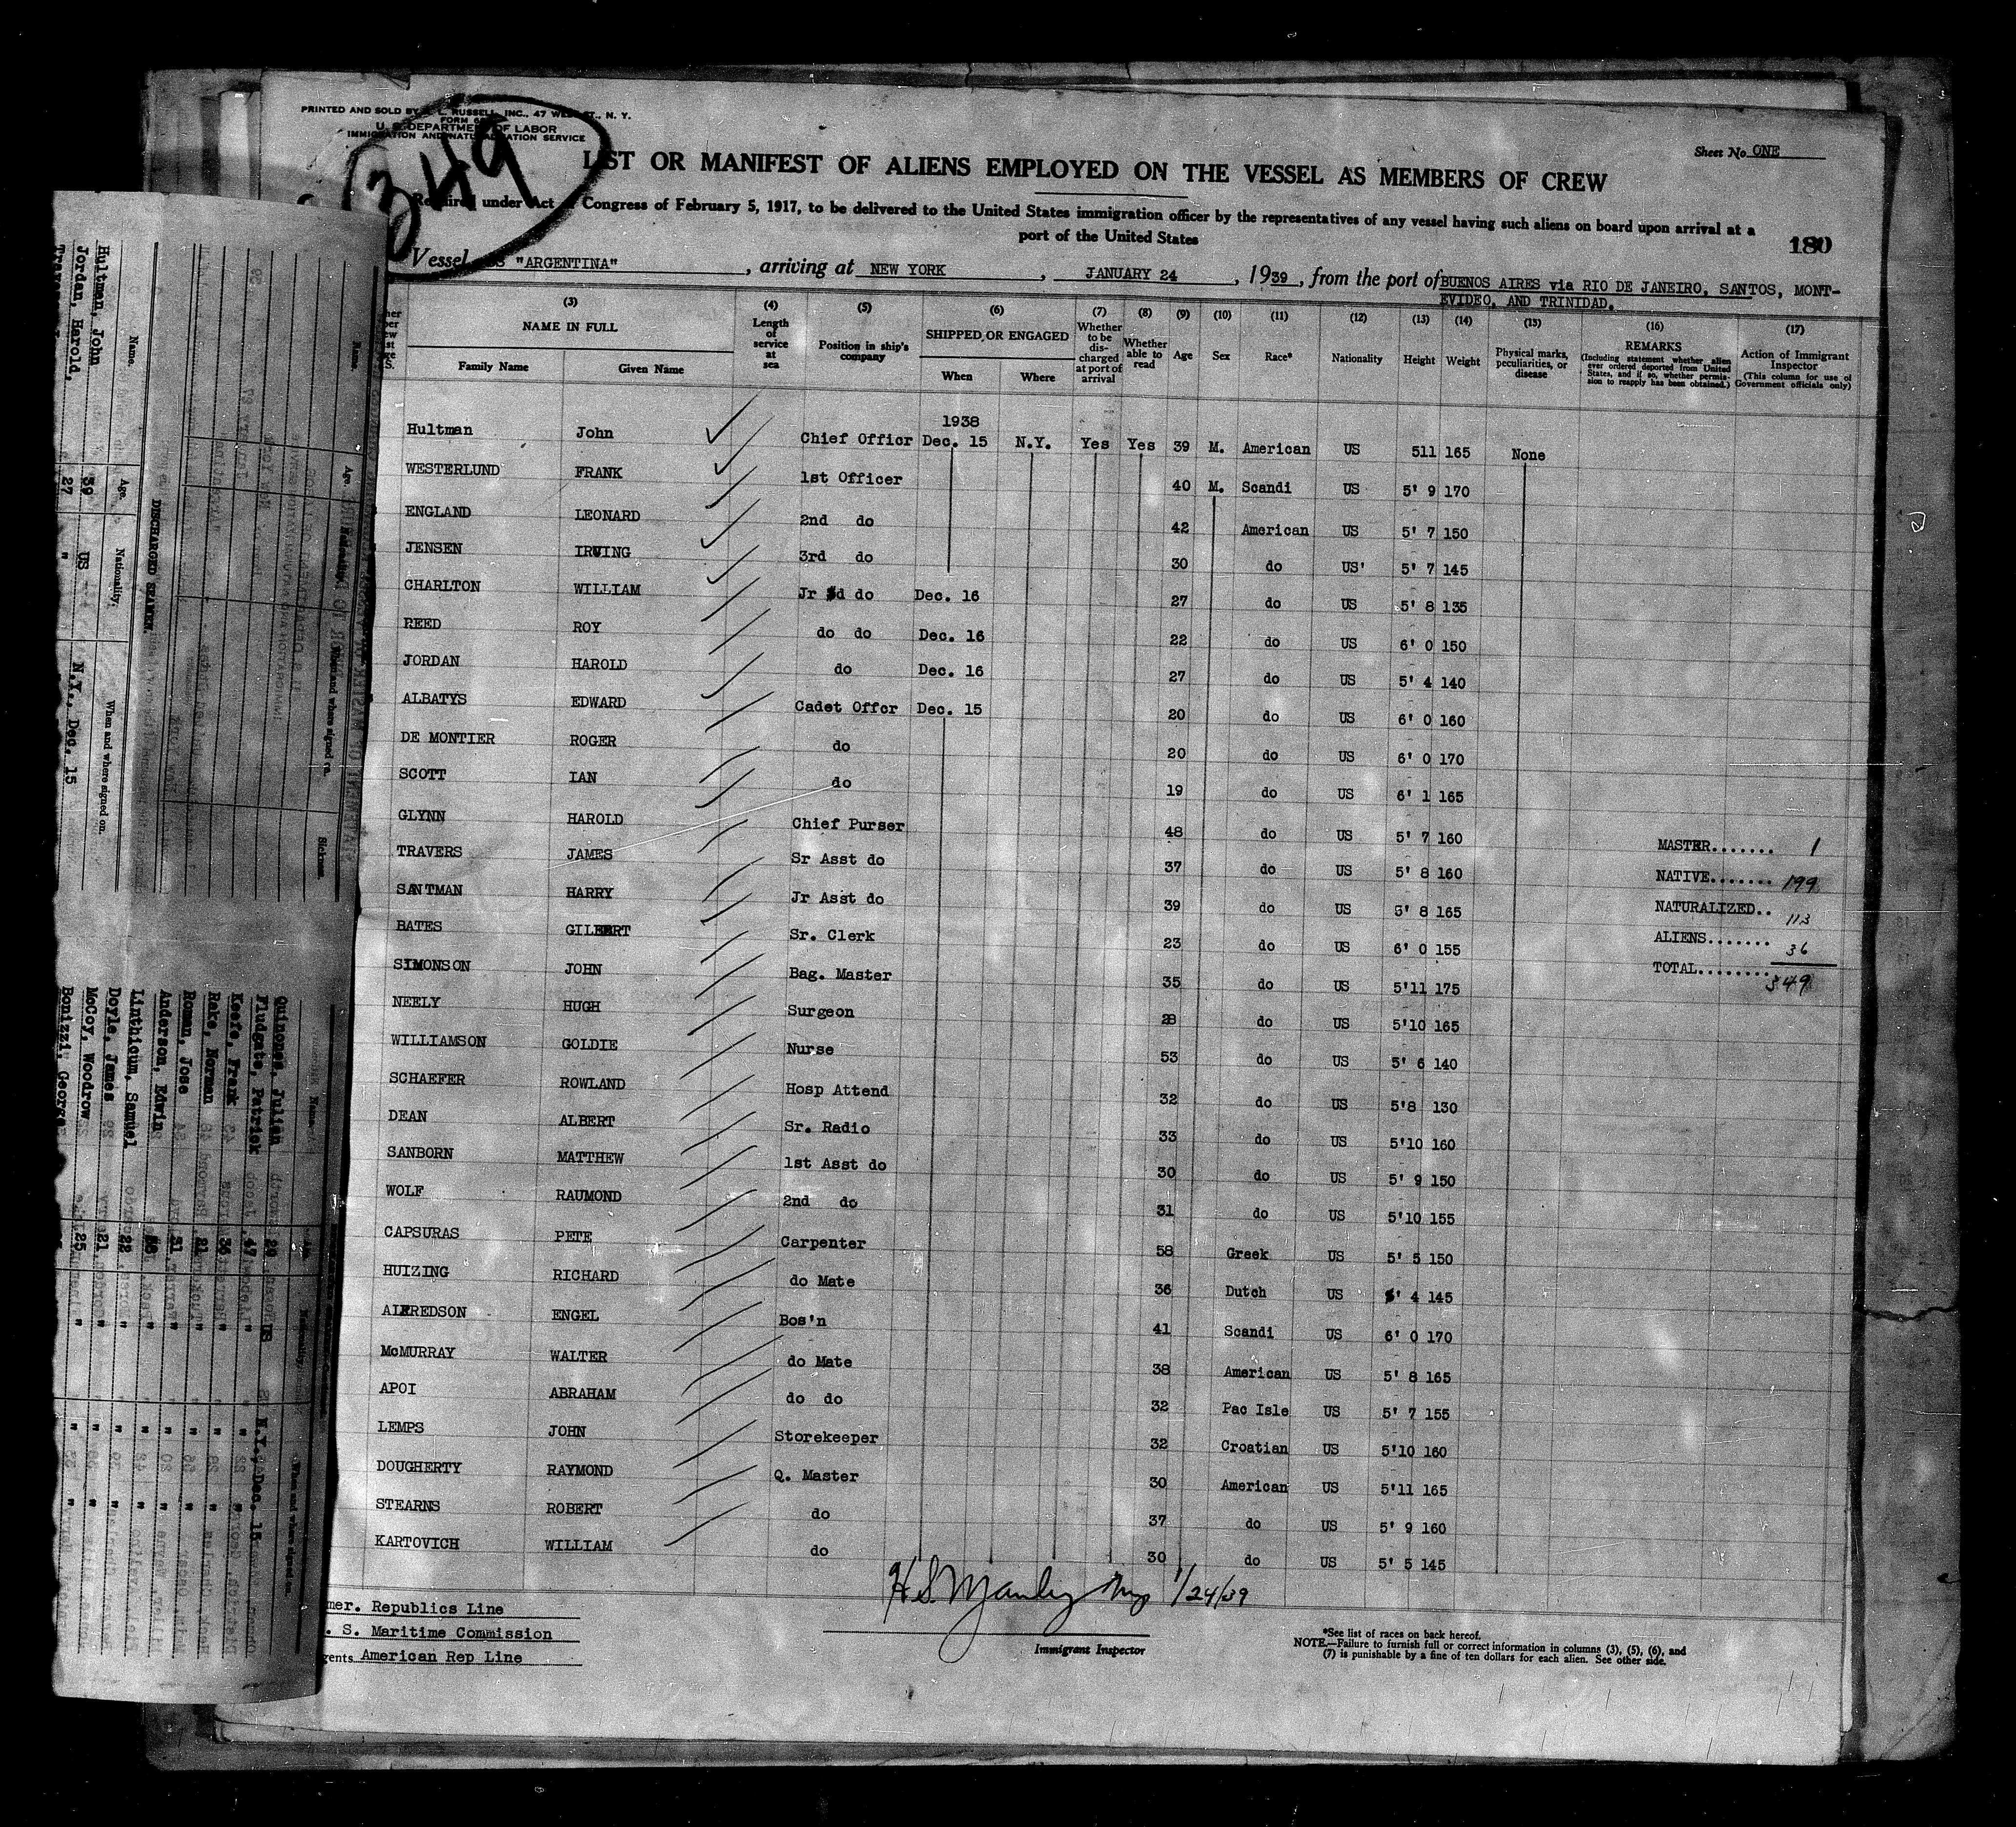 PRINTED AND SOLD BY RUSSELL, INC., 47 WEST ST., N. Y.
U. S. DEPARTMENT OF LABOR
IMMIGRATION AND NATURALIZATION SERVICE
349
Sheet No. ONE
LIST OR MANIFEST OF ALIENS EMPLOYED ON THE VESSEL AS MEMBERS OF CREW
Required under Act of Congress of February 5, 1917, to be delivered to the United States immigration officer by the representatives of any vessel having such aliens on board upon arrival at a
port of the United States
180
Vessel SS "ARGENTINA", arriving at NEW YORK, JANUARY 24, 1939, from the port of BUENOS AIRES via RIO DE JANEIRO, SANTOS, MONT-
EVIDEO, AND TRINIDAD.
(3) NAME IN FULL Family Name Given Name (4) Length of service at sea (5) Position in ship's company (6) SHIPPED OR ENGAGED When Where (7) Whether to be discharged at port of arrival (8) Whether able to read (9) Age (10) Sex (11) Race* (12) Nationality (13) Height (14) Weight (15) Physical marks, peculiarities, or disease (16) REMARKS (Including statement whether alien ever ordered deported from United States, and if so, whether permission to reapply has been obtained.) (17) Action of Immigrant Inspector (This column for use of Government officials only)
1938
Hultman John Chief Officr Dec. 15 N.Y. Yes Yes 39 M. American US 511 165 None
WESTERLUND FRANK 1st Officer 40 M. Scandi US 5' 9 170
ENGLAND LEONARD 2nd do 42 American US 5' 7 150
JENSEN IRVING 3rd do 30 do US' 5' 7 145
CHARLTON WILLIAM Jr 3d do Dec. 16 27 do US 5' 8 135
REED ROY do do Dec. 16 22 do US 6' 0 150
JORDAN HAROLD do Dec. 16 27 do US 5' 4 140
ALBATYS EDWARD Cadet Offcr Dec. 15 20 do US 6' 0 160
DE MONTIER ROGER do 20 do US 6' 0 170
SCOTT IAN do 19 do US 6' 1 165
GLYNN HAROLD Chief Purser 48 do US 5' 7 160
TRAVERS JAMES Sr Asst do 37 do US 5' 8 160
SANTMAN HARRY Jr Asst do 39 do US 5' 8 165
BATES GILBERT Sr. Clerk 23 do US 6' 0 155
SIMONSON JOHN Bag. Master 35 do US 5'11 175
NEELY HUGH Surgeon 28 do US 5'10 165
WILLIAMSON GOLDIE Nurse 53 do US 5' 6 140
SCHAEFER ROWLAND Hosp Attend 32 do US 5'8 130
DEAN ALBERT Sr. Radio 33 do US 5'10 160
SANBORN MATTHEW 1st Asst do 30 do US 5' 9 150
WOLF RAUMOND 2nd do 31 do US 5'10 155
CAPSURAS PETE Carpenter 58 Greek US 5' 5 150
HUIZING RICHARD do Mate 36 Dutch US 5' 4 145
ALFREDSON ENGEL Bos'n 41 Scandi US 6' 0 170
McMURRAY WALTER do Mate 38 American US 5' 8 165
APOI ABRAHAM do do 32 Pac Isle US 5' 7 155
LEMPS JOHN Storekeeper 32 Croatian US 5'10 160
DOUGHERTY RAYMOND Q. Master 30 American US 5'11 165
STEARNS ROBERT do 37 do US 5' 9 160
KARTOVICH WILLIAM do 30 do US 5' 5 145
MASTER....... 1
NATIVE....... 199
NATURALIZED.. 113
ALIENS....... 36
TOTAL........ 349
H S Manley Insp 1/24/39
Immigrant Inspector
mer. Republics Line
. S. Maritime Commission
gents American Rep Line
*See list of races on back hereof.
NOTE.—Failure to furnish full or correct information in columns (3), (5), (6), and
(7) is punishable by a fine of ten dollars for each alien. See other side.
DISCHARGED SEAMEN.
Name. Age. Nationality. When and where signed on.
Hultman, John 39 US N.Y., Dec. 15
Jordan, Harold, 27 "
Quinones, Julien 29 US N.Y., Dec. 15
Fludgate, Patrick 47 "
Keefe, Frank 36 " " "
Rake, Norman 21 " " "
Roman, Jose 31 " " "
Anderson, Edwin " " "
Linthicum, Samuel 22 " " "
Doyle, James 21 " " "
McCoy, Woodrow 25 " " "
Bonizzi, George